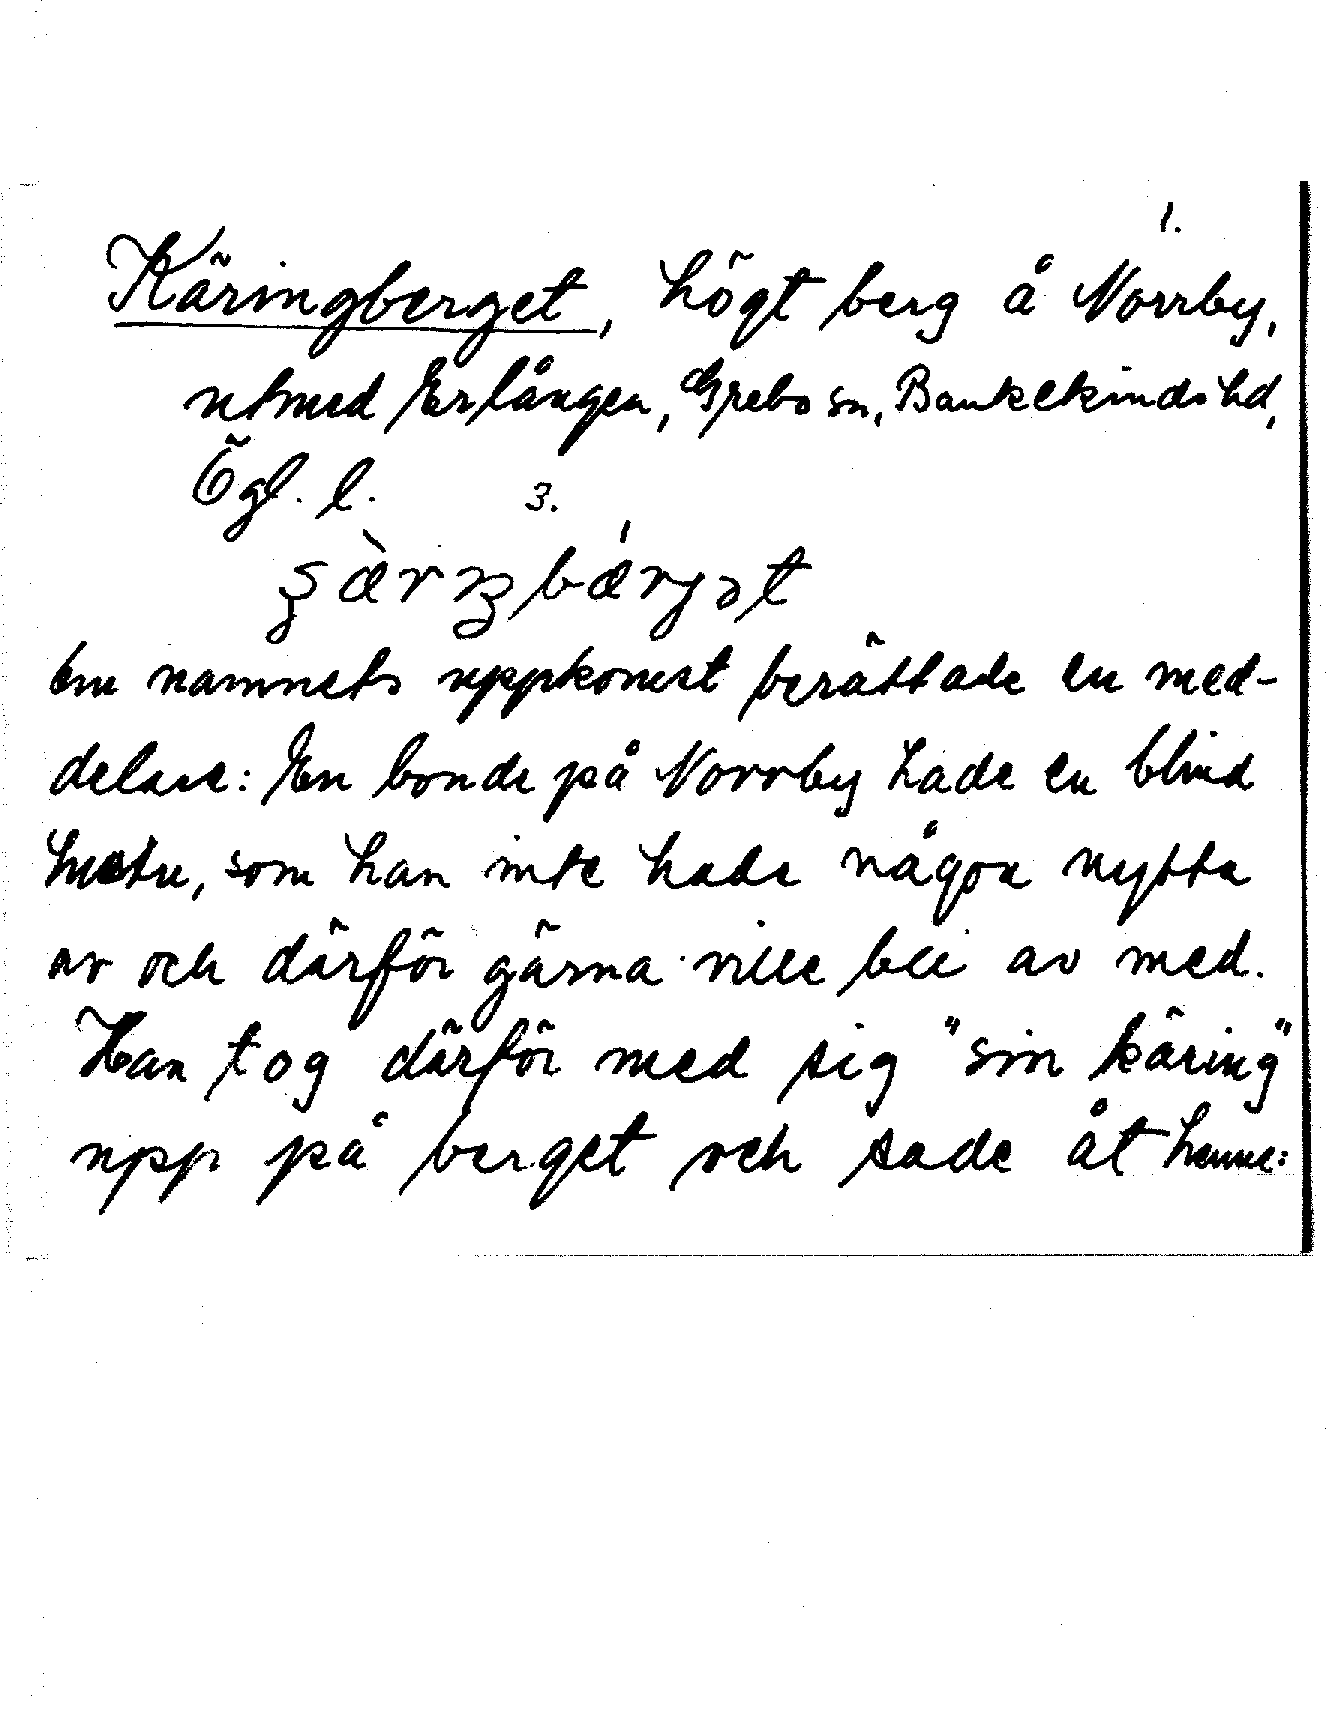 1.
Käringberget, högt berg å Norrby,
utmed Erlången, Grebo sn, Bankekinds hd,
Ögl. l. 3.
bærjət
Om namnets uppkomst berättade en med-
delare: En bonde på Norrby hade en blind
hustru, som han inte hade någon nytta
av och därför gärna ville bli av med.
Han tog därför med sig "sin käring"
upp på berget och sade åt henne: